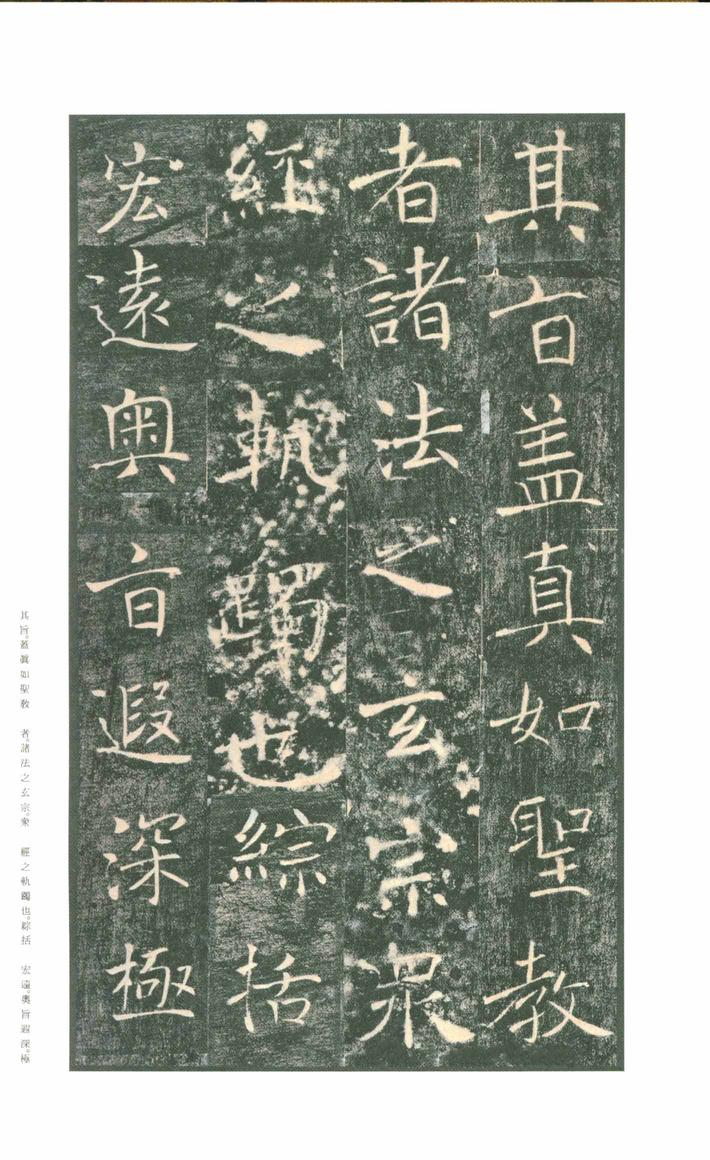 其旨盖真如聖教
者諸法之玄宗衆
經之軌躅也綜括
宏遠奥旨遐深極
其旨。蓋眞如聖教　者。諸法之玄宗。衆　經之軌躅也。綜括　宏遠。奧旨遐深。極